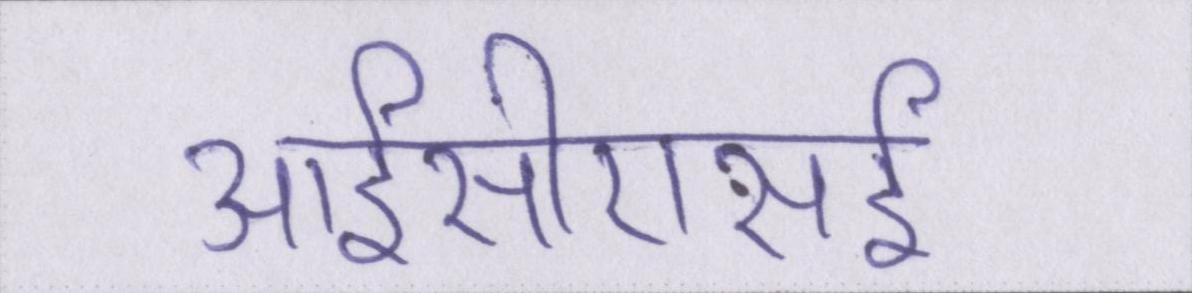 आईसीएसई